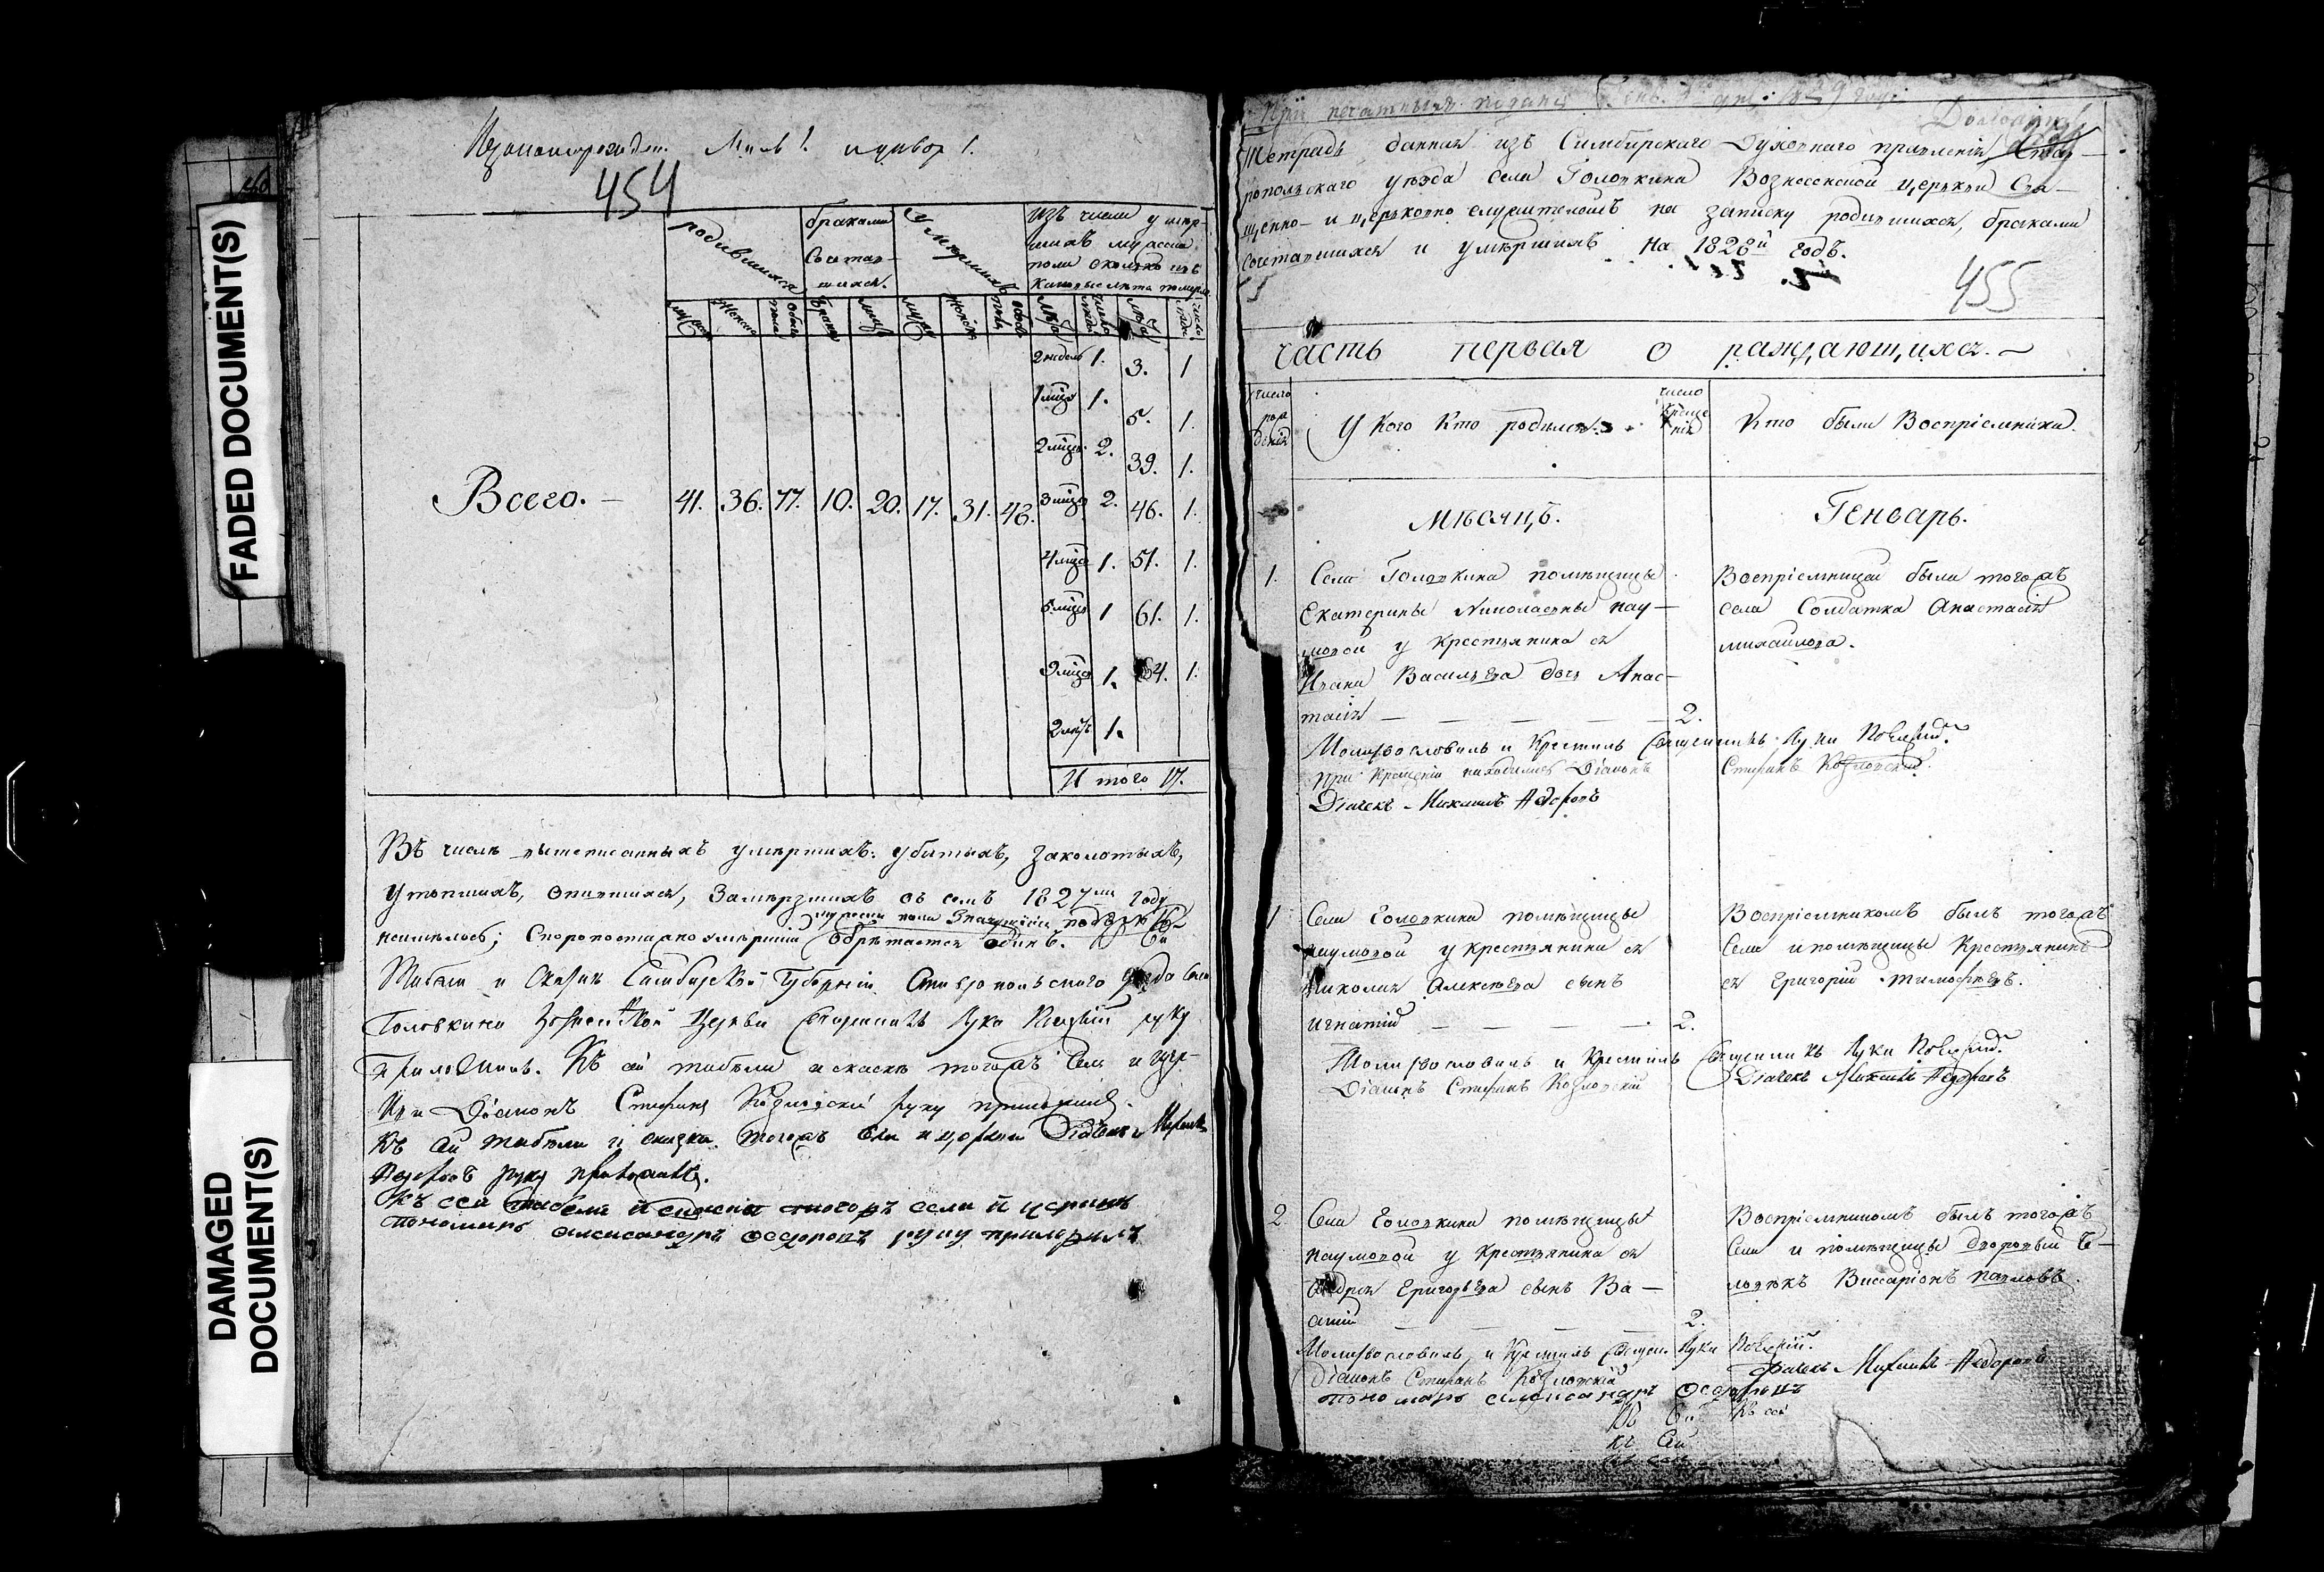 FADED DOCUMENT(S)
DAMAGED
DOCUMENT(S)
454
родившихся
бракомъ
Сочетав-
шихся.
Умершихъ
Изъ числа умер-
шихъ мужеска
пола сколько изъ
каковые лѣта померли
2 недель 1. 3. 1
1 мцъ 1.
5. 1.
2 мцъ 2.
39. 1.
Всего. — 41. 36. 77. 10. 20. 17. 31. 48. 3 мцъ 2. 46. 1.
4 мцъ 1. 51. 1.
5 мцъ 1 61. 1.
9 мцъ 1. 64. 1.
2 лѣтъ 1.
Итого 17.
Въ числѣ вышеписанныхъ умершихъ: убитыхъ, заколотыхъ,
утопшихъ, опившихся, замерзшихъ въ семъ 1827 году
неимѣлось; Скоропостижно умершій обрѣтается одинъ.
Симбирской Губерніи Ставропольского уѣзда села
Головкина Церкви Священникъ Лука руку
приложилъ. Къ сей табели и сказке тогожъ села и цер-
кви Діаконъ Стефанъ Козловскій руку приложилъ.
Къ сей табели и сказки тогожъ села и церкви Дьячекъ Михаилъ
Федоровъ руку приложилъ.
Къ сей табели и сказки тогожъ села и церкви
пономарь александръ федоровъ руку приложилъ
Тетрадь данная изъ Симбирскаго Духовнаго правленія Став-
ропольскаго уѣзда села Головкина Вознесенской церкви Свя-
щенно- и церковно служителямъ на записку родившихся, браками
сочетавшихся и умершихъ на 1828й годъ.
455
часть первая о раждающихся. —
число
рож
денія
У кого кто родился.
число
креще
нія
Кто были Воспріемники.
Мѣсяцъ. Генварь.
1. Села Головкина помѣщицы
Екатерины Николаевны нау-
мовой у крестьянина ея
Ивана Васильева дочь Анас-
тасія — — — — 2.
Воспріемницей была тогожъ
села Солдатка Анастасія
михаилова.
Молитвословилъ и Крестилъ Священникъ Лука
при крещеніи находились Діаконъ Стефанъ Козловскій
Дьячекъ Михаилъ Федоровъ
1 Села Головкина помѣщицы
наумовой у крестьянина ея
николая Алексѣева сынъ
игнатій — — — — 2.
Воспріемникомъ былъ тогожъ
села и помѣщицы крестьянинъ
ея Григорій тимофѣевъ.
Молитвословилъ и Крестилъ Священникъ Лука
Діаконъ Стефанъ Козловскій Дьячекъ Михаилъ Федоровъ
2 Села Головкина помѣщицы
наумовой у крестьянина ея
Андрея Григорьева сынъ Ва-
силій — — — — 2.
Воспріемникомъ былъ тогожъ
села и помѣщицы дворовый че-
ловѣкъ Виссаріонъ павловъ.
Молитвословилъ и Крестилъ Священ Лука
Діаконъ Стефанъ Козловскій Дьячекъ Михаилъ Федоровъ
пономарь александръ федоровъ
Къ сей
Къ сей